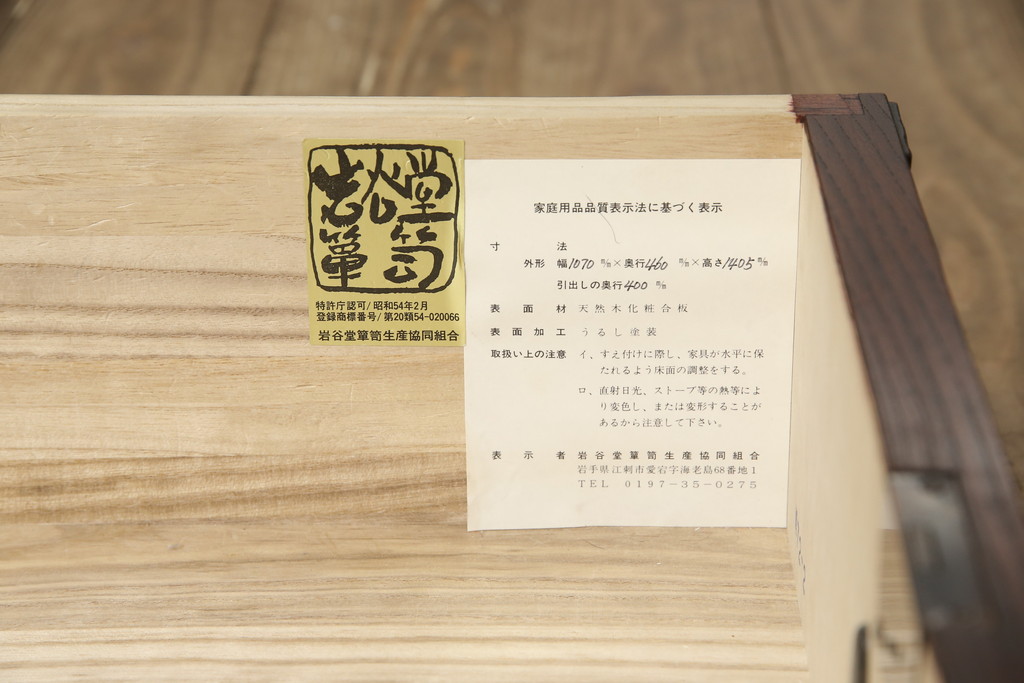 岩谷堂
簞笥
特許庁認可/昭和54年2月
登録商標番号/第20類54-020066
岩谷堂簞笥生産協同組合
家庭用品品質表示法に基づく表示
寸法
外形 幅1070m/m×奥行460m/m×高さ1405m/m
引出しの奥行400m/m
表面材 天然木化粧合板
表面加工 うるし塗装
取扱い上の注意 イ、すえ付けに際し、家具が水平に保
たれるよう床面の調整をする。
ロ、直射日光、ストーブ等の熱等によ
り変色し、または変形することが
あるから注意して下さい。
表示者 岩谷堂簞笥生産協同組合
岩手県江刺市愛宕字海老島68番地1
TEL 0197-35-0275